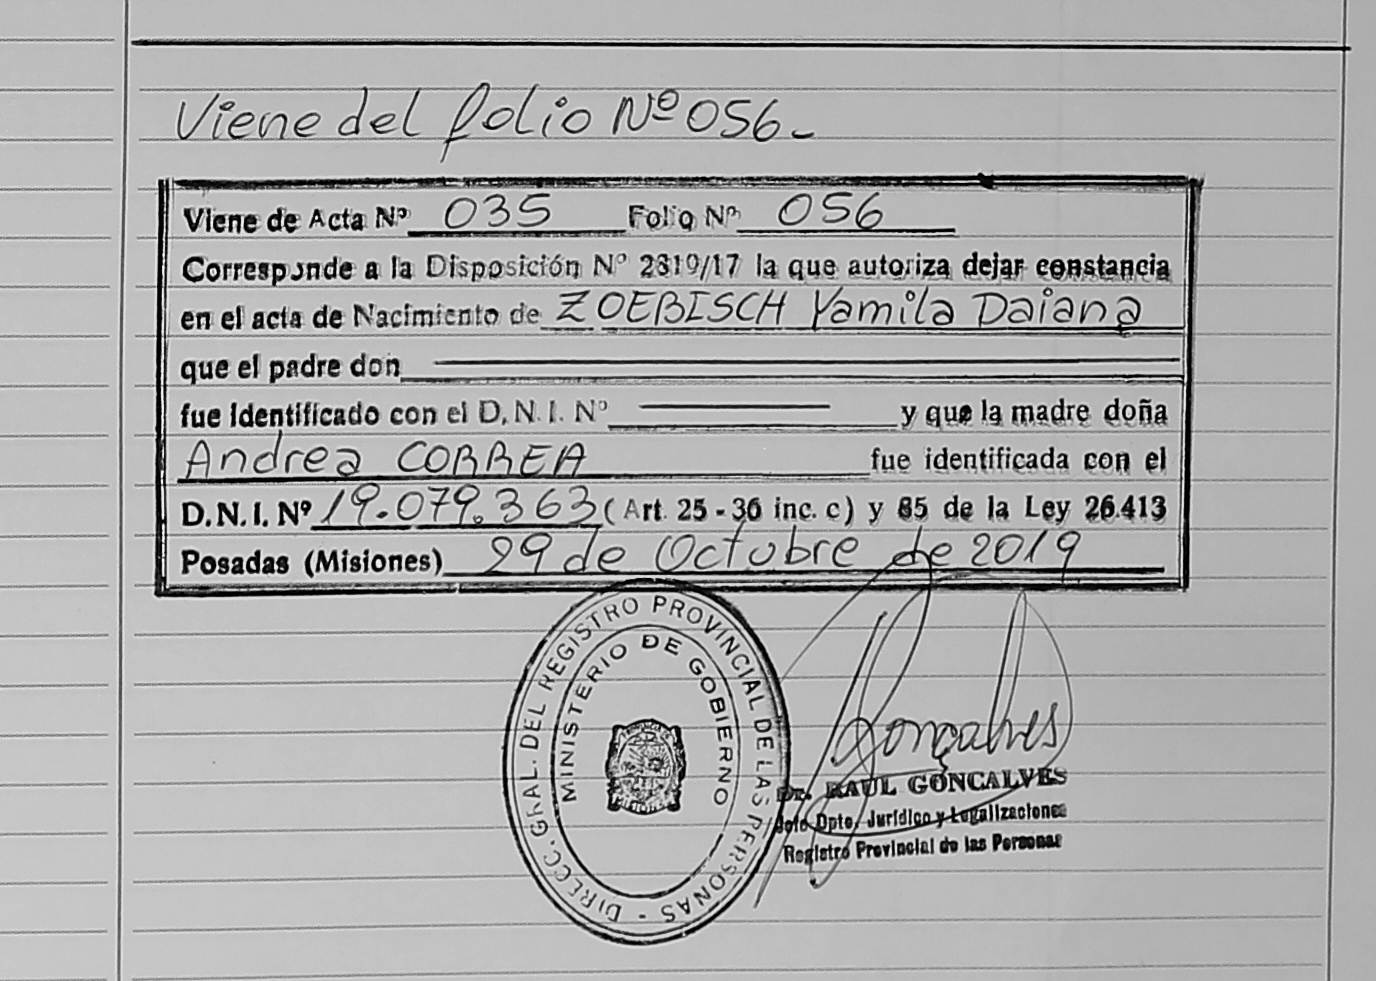 Viene del folio Nº 056-
Viene de Acta Nº 035 Folio Nº 056
Corresponde a la Disposición Nº 2819/17 la que autoriza dejar constancia
en el acta de Nacimiento de ZOEBISCH Yamila Daiana
que el padre don
fue identificado con el D.N.I. Nº y que la madre doña
Andrea CORREA fue identificada con el
D.N.I. Nº 19.079.363 (Art. 25-36 inc. c) y 85 de la Ley 26.413
Posadas (Misiones) 29 de Octubre de 2019
DIRECC. GRAL. DEL REGISTRO PROVINCIAL DE LAS PERSONAS -
MINISTERIO DE GOBIERNO
Goncalves
Dr. RAUL GONCALVES
Jefe Dpto. Jurídico y Legalizaciones
Registro Provincial de las Personas